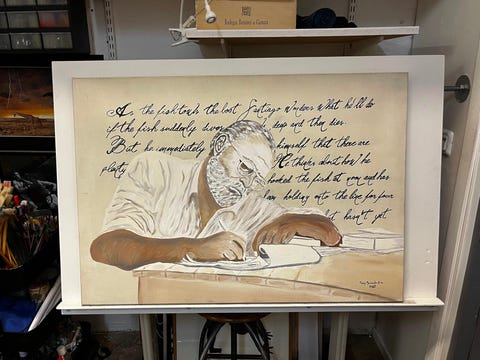 Bodegas Ramirez de Ganuza
As the fish tows the lost Santiago wonders what he'll do
if the fish suddenly dives deep and then dies.
But he immediately himself that there are
plenty He thinks about how he
hooked the fish at noon and has
been holding onto the line for four
but hasn't yet